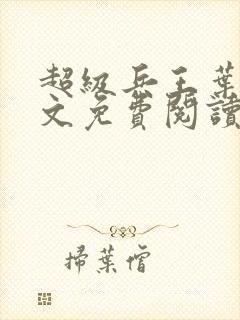 超級兵王葉
文免費閱讀
掃葉僧